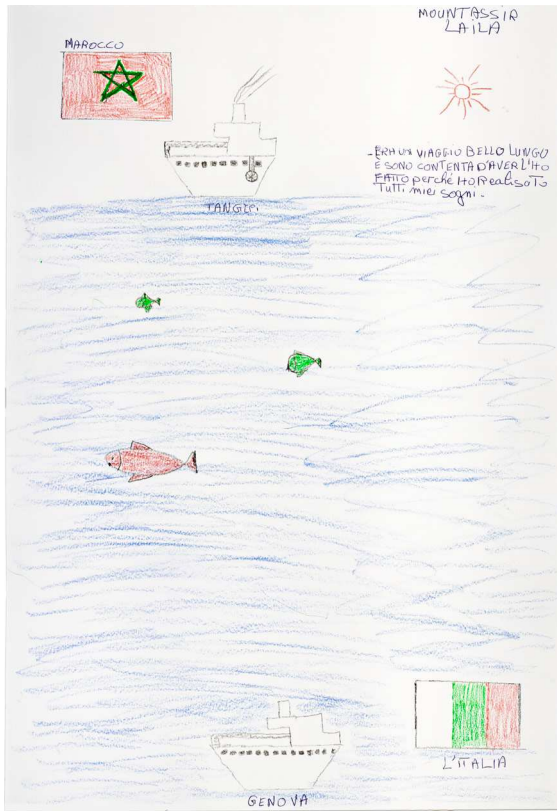 MOUNTASSIR
LAILA
MAROCCO
- ERA UN VIAGGIO BELLO LUNGO
E SONO CONTENTA D'AVER L'HO
FATTO perché Ho Realisato
Tutti miei sogni.
TANGER
L'ITALIA
GENOVA